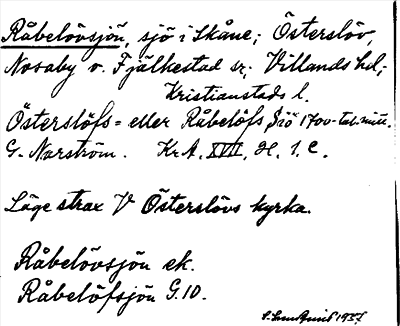 Råbelövsjön, sjö i Skåne; Österslöv,
Nosaby o. Fjälkestad sr; Villands hd;
Kristianstads l.
Österslöfs= eller Råbelöfs Siö 1700-tal. mitt.
G. Norström. Kr A. XVII, H. 1. c.
Läge strax V Österslövs kyrka.
Råbelövsjön ek.
Råbelöfsjön G.10.
1957